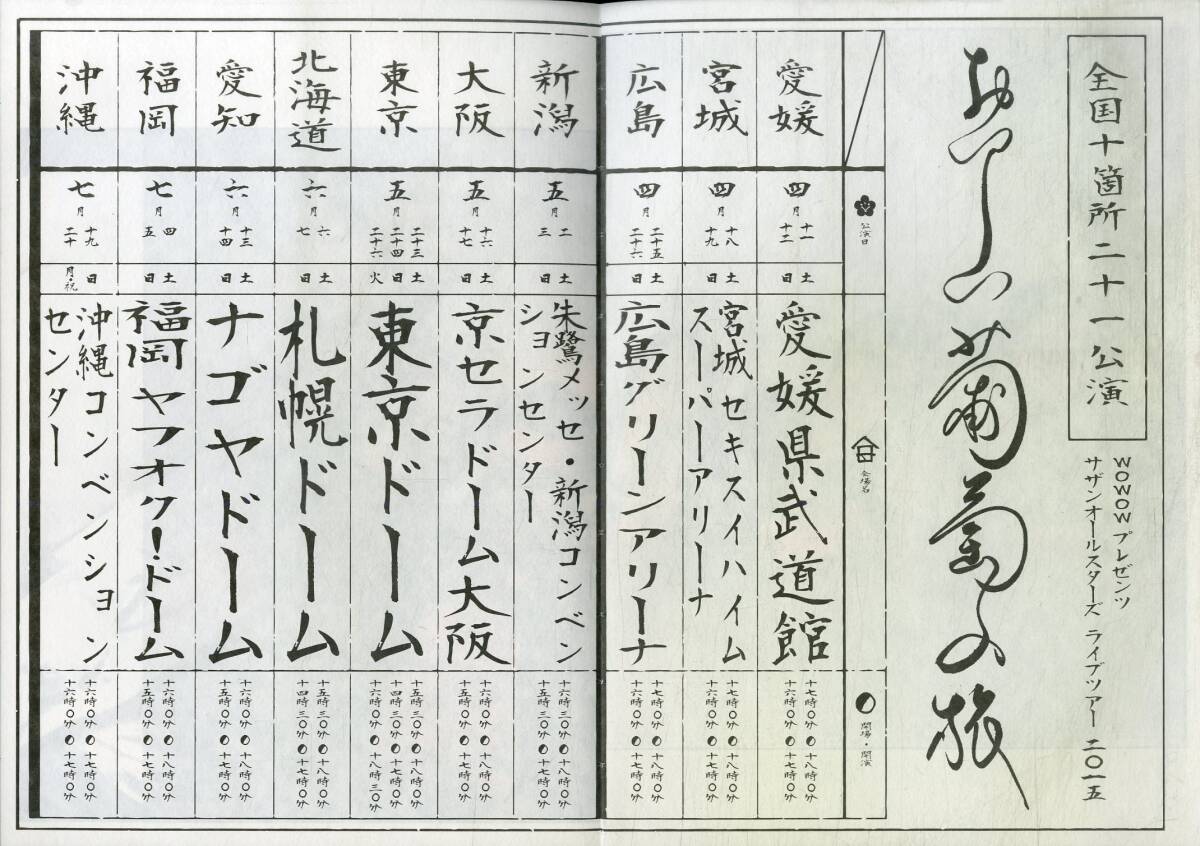 全国十箇所二十一公演
WOWOW プレゼンツ
サザンオールスターズ ライブツアー 二〇一五
おいしい葡萄の旅
公演日
会場名
開場・開演
愛媛
四月
十一 土
十二 日
愛媛県武道館
十七時〇分 十八時〇分
十六時〇分 十七時〇分
宮城
四月
十八 土
十九 日
宮城セキスイハイム
スーパーアリーナ
十七時〇分 十八時〇分
十六時〇分 十七時〇分
広島
四月
二十五 土
二十六 日
広島グリーンアリーナ
十七時〇分 十八時〇分
十六時〇分 十七時〇分
新潟
五月
二 土
三 日
朱鷺メッセ・新潟コンベン
ションセンター
十六時三〇分 十八時〇分
十五時三〇分 十七時〇分
大阪
五月
十六 土
十七 日
京セラドーム大阪
十六時〇分 十八時〇分
十五時〇分 十七時〇分
東京
五月
二十三 土
二十四 日
二十六 火
東京ドーム
十五時三〇分 十八時〇分
十四時三〇分 十七時〇分
十六時〇分 十八時三〇分
北海道
六月
六 土
七 日
札幌ドーム
十五時三〇分 十八時〇分
十四時三〇分 十七時〇分
愛知
六月
十三 土
十四 日
ナゴヤドーム
十六時〇分 十八時〇分
十五時〇分 十七時〇分
福岡
七月
四 土
五 日
福岡ヤフオク!ドーム
十六時〇分 十八時〇分
十五時〇分 十七時〇分
沖縄
七月
十九 日
二十 月・祝
沖縄コンベンション
センター
十六時〇分 十七時〇分
十六時〇分 十七時〇分